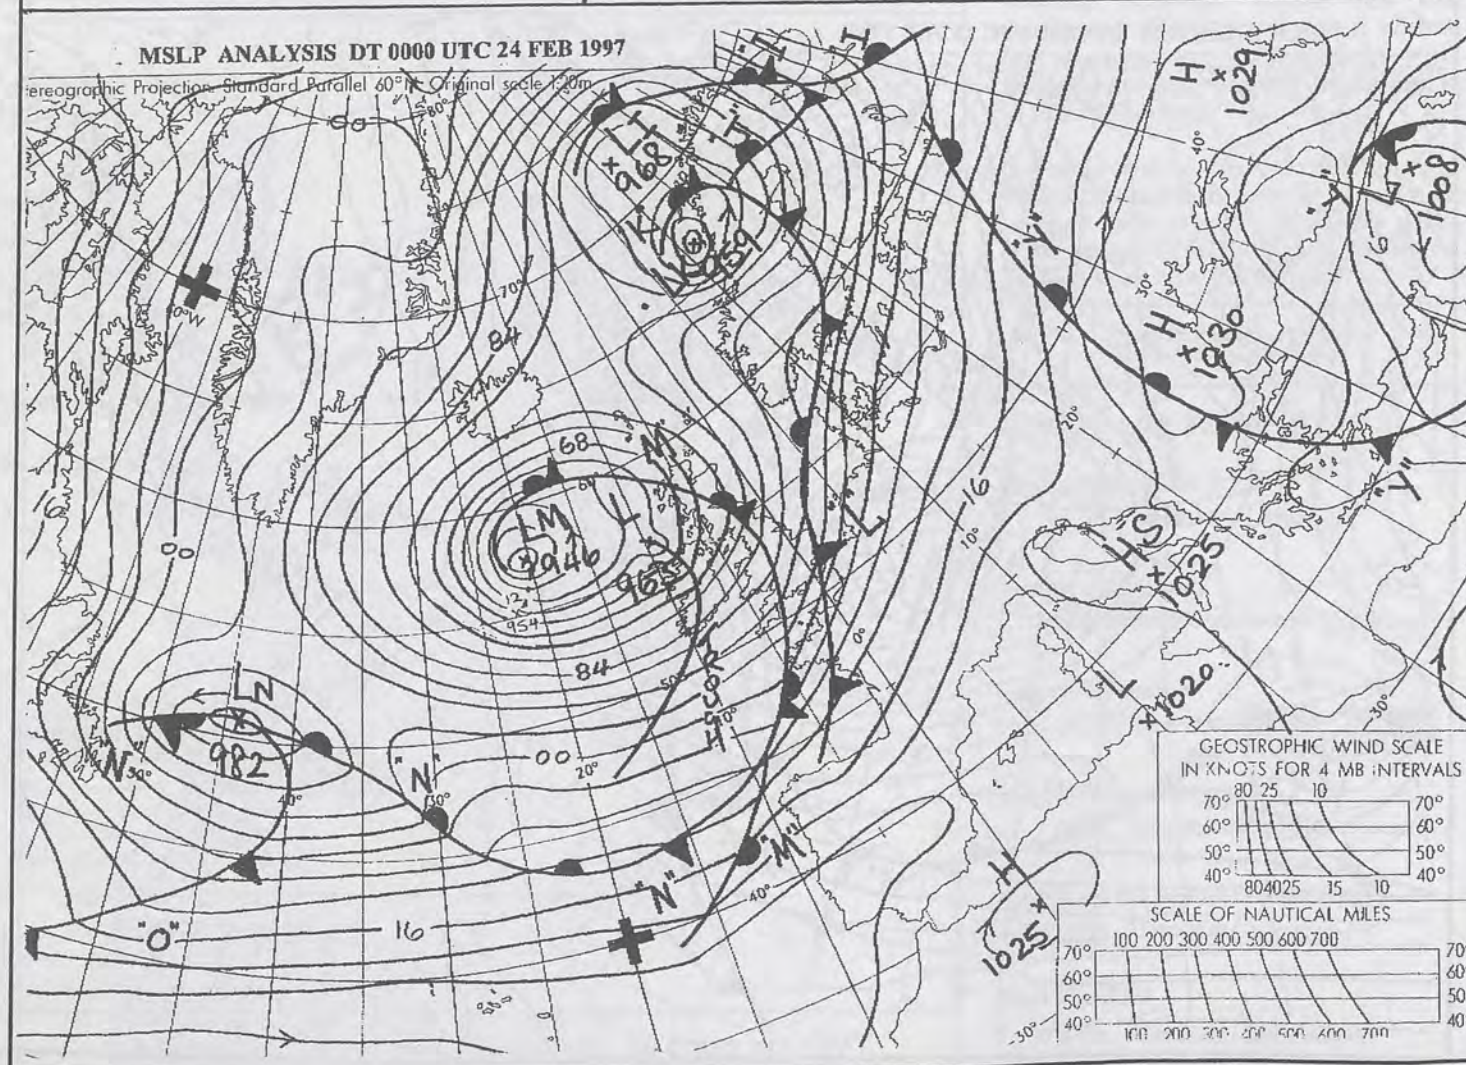 MSLP ANALYSIS DT 0000 UTC 24 FEB 1997
ereographic Projection Standard Parallel 60°N Original scale 1:20m
00
80°
"I"
I
H
1029
LI
968
"J"
K
LK
959
40°
"Y"
L
1008
16
"Y"
70°
84
30°
H
1030
20°
"M"
68
64
"Y"
LM
946
L
965
"L"
16
10°
HS
1025
00
954
84
50°
TROUGH
0°
10°
L
1020
30°
LN
982
"N"
"N"
00
20°
40°
30°
"M"
"N"
40°
"O"
16
H
1025
30°
0
GEOSTROPHIC WIND SCALE
IN KNOTS FOR 4 MB INTERVALS
80 25 10
70° 70°
60° 60°
50° 50°
40° 40°
80 40 25 15 10
SCALE OF NAUTICAL MILES
100 200 300 400 500 600 700
70° 70
60° 60
50° 50
40° 40
100 200 300 400 500 600 700